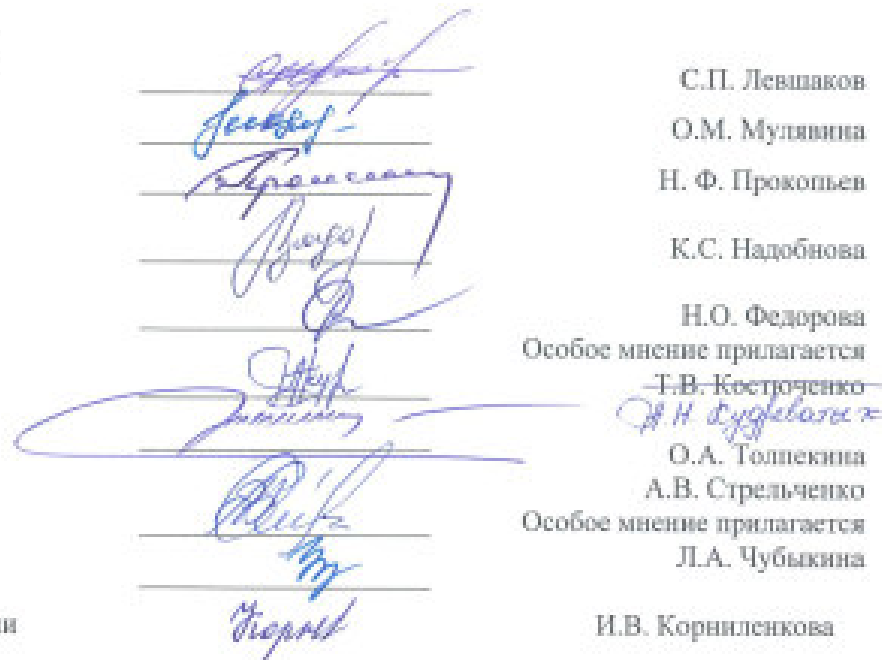 С.П. Левшаков
О.М. Мулявина
Н. Ф. Прокопьев
К.С. Надобнова
Н.О. Федорова
Особое мнение прилагается
Т.В. Костюченко
А.Н. Кудреватых
О.А. Толпекина
А.В. Стрельченко
Особое мнение прилагается
Л.А. Чубыкина
и И.В. Корниленкова